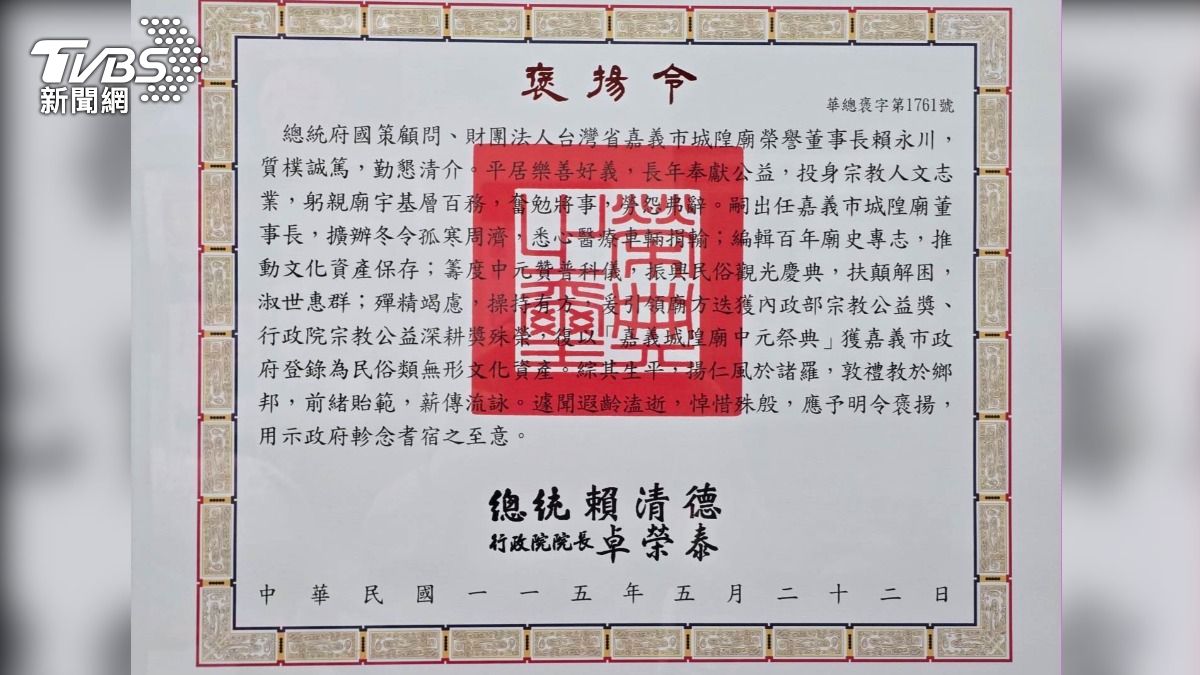 TVBS
新聞網
褒揚令
華總褒字第1761號
總統府國策顧問、財團法人台灣省嘉義市城隍廟榮譽董事長賴永川，
質樸誠篤，勤懇清介。平居樂善好義，長年奉獻公益，投身宗教人文志
業，躬親廟宇基層百務，奮勉將事，勞怨弗辭。嗣出任嘉義市城隍廟董
事長，擴辦冬令孤寒周濟，悉心醫療車輛捐輸；編輯百年廟史專志，推
動文化資產保存；籌度中元贊普科儀，振興民俗觀光慶典，扶顛解困，
淑世惠群；殫精竭慮，操持有方，爰引領廟方迭獲內政部宗教公益獎、
行政院宗教公益深耕獎殊榮，復以「嘉義城隍廟中元祭典」獲嘉義市政
府登錄為民俗類無形文化資產。綜其生平，揚仁風於諸羅，敦禮教於鄉
邦，前緒貽範，薪傳流詠。遽聞遐齡溘逝，悼惜殊殷，應予明令褒揚，
用示政府軫念耆宿之至意。
總統 賴清德
行政院院長 卓榮泰
中華民國一一五年五月二十二日
榮典之璽